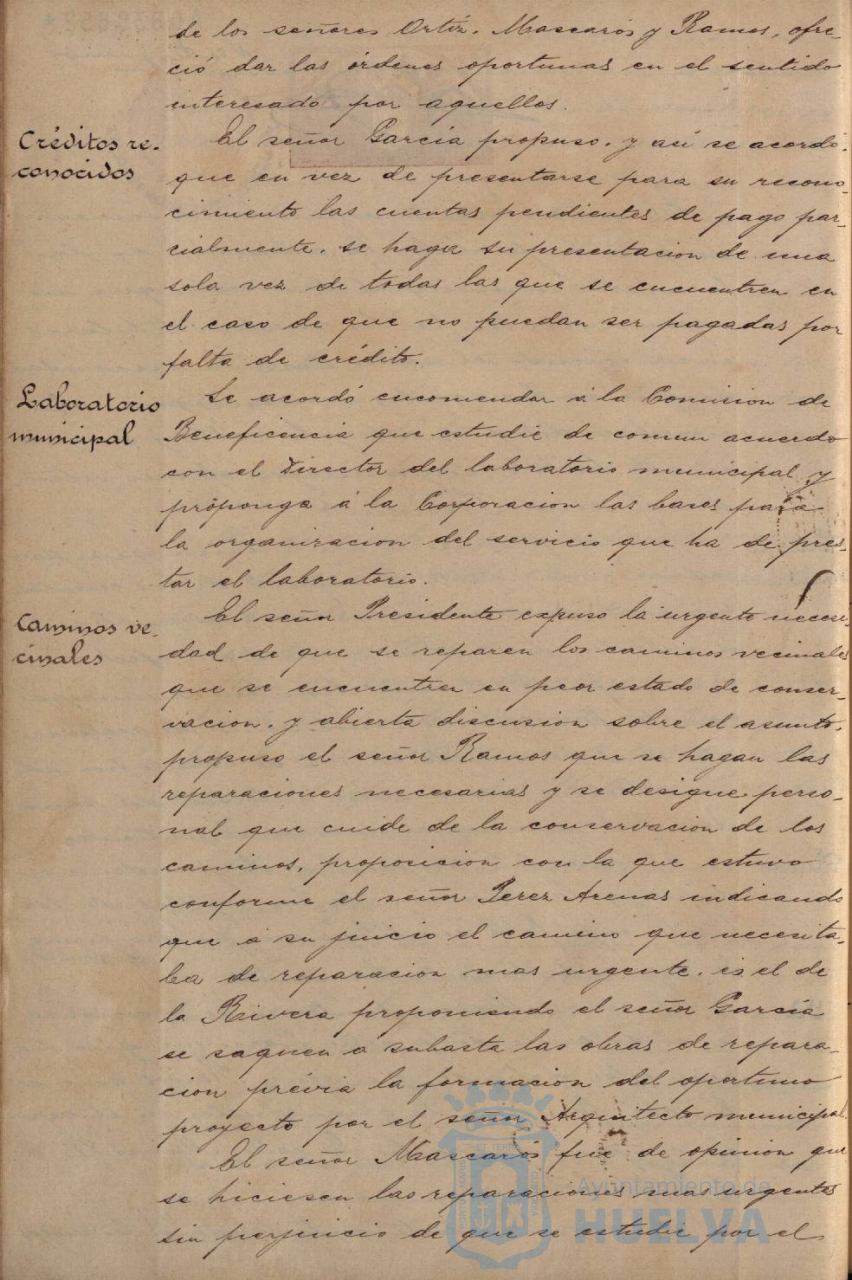 de los señores Ortíz, Mascarós y Ramos, ofre-
ció dar las órdenes oportunas en el sentido
interesado por aquellos.
Créditos re-
conocidos
El señor García propuso, y así se acordó,
que en vez de presentarse para su recono-
cimiento las cuentas pendientes de pago par-
cialmente, se haga su presentacion de una
sola vez de todas las que se encuentren en
el caso de que no puedan ser pagadas por
falta de crédito.
Laboratorio
municipal
Se acordó encomendar á la Comision de
Beneficencia que estudie de comun acuerdo
con el Director del laboratorio municipal y
próponga á la Corporacion las bases para
la organizacion del servicio que ha de pres-
tar el laboratorio.
Caminos ve-
cinales
El señor Presidente expuso la urgente necesi-
dad de que se reparen los caminos vecinales
que se encuentren en peor estado de conser-
vacion, y abierta discusion sobre el asunto,
propuso el señor Ramos que se hagan las
reparaciones necesarias y se designe perso-
nal que cuide de la conservacion de los
caminos, proposicion con la que estuvo
conforme el señor Perez Arenas indicando
que á su juicio el camino que necesita-
ba de reparacion mas urgente, es el de
la Rivera proponiendo el señor García
se saquen a subasta las obras de repara-
cion prévia la formacion del oportuno
proyecto por el señor Arquitecto municipal.
El señor Mascarós fue de opinion que
se hiciesen las reparaciones mas urgentes
sin perjuicio de que se estudie por el
Ayuntamiento de
HUELVA